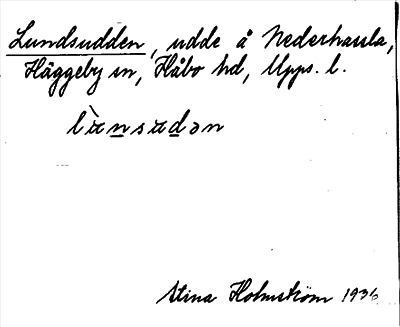 Lundsudden, udde å Nederhassla,
Häggeby sn, Håbo hd, Upps. l.
lằnsadən
Stina Holmström 1936